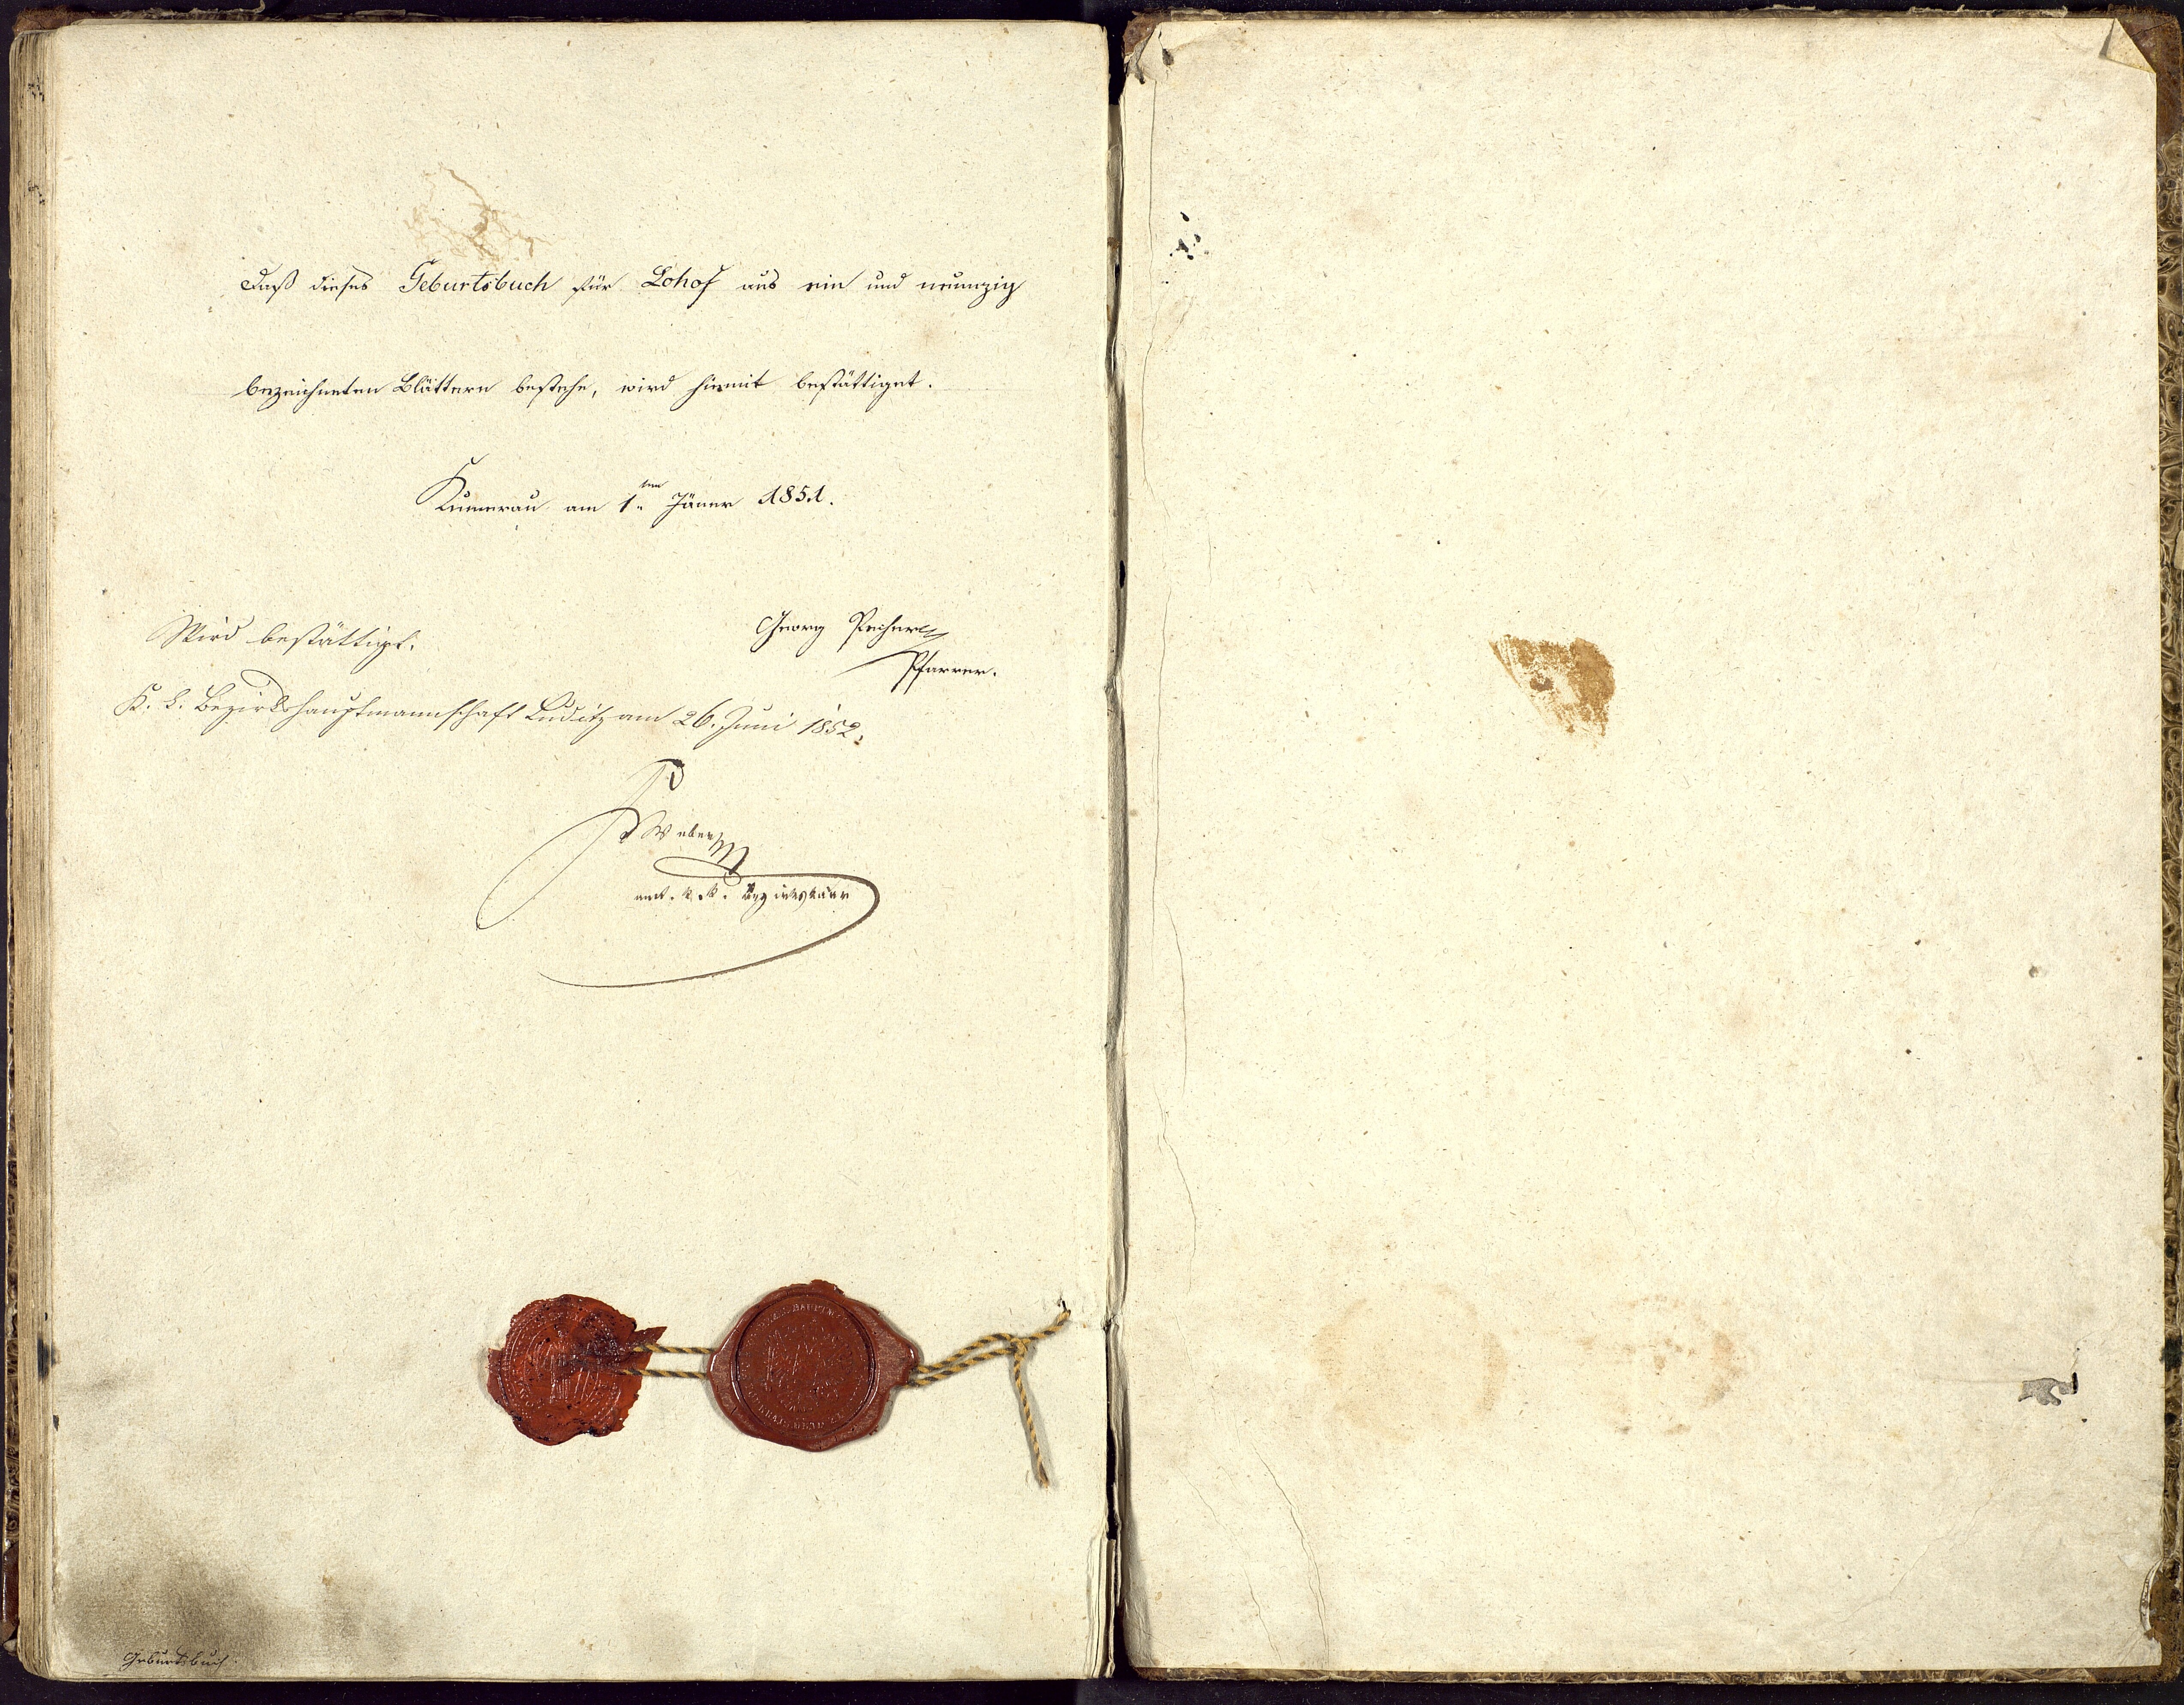 Daß dieses Geburtsbuch für Lohof aus ein und neunzig
bezeichneten Blättern bestehe, wird hiemit bestättiget.
Kumerau am 1ten Jäner 1851.
Georg Pecherl
Pfarrer.
Wird bestättigt.
K. k. Bezirkshauptmannschaft Luditz am 26. Juni 1852.
Weber
k. k.
Geburtsbuch.